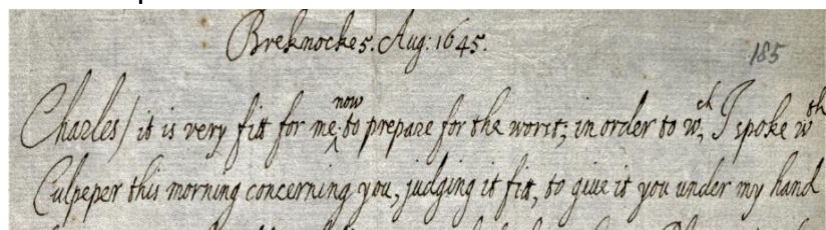 Breknocke 5. Aug: 1645.
185
Charles/ it is very fitt for me now to prepare for the worst; in order to wch, I spoke wth
Culpeper this morning concerning you, judging it fitt, to give it you under my hand